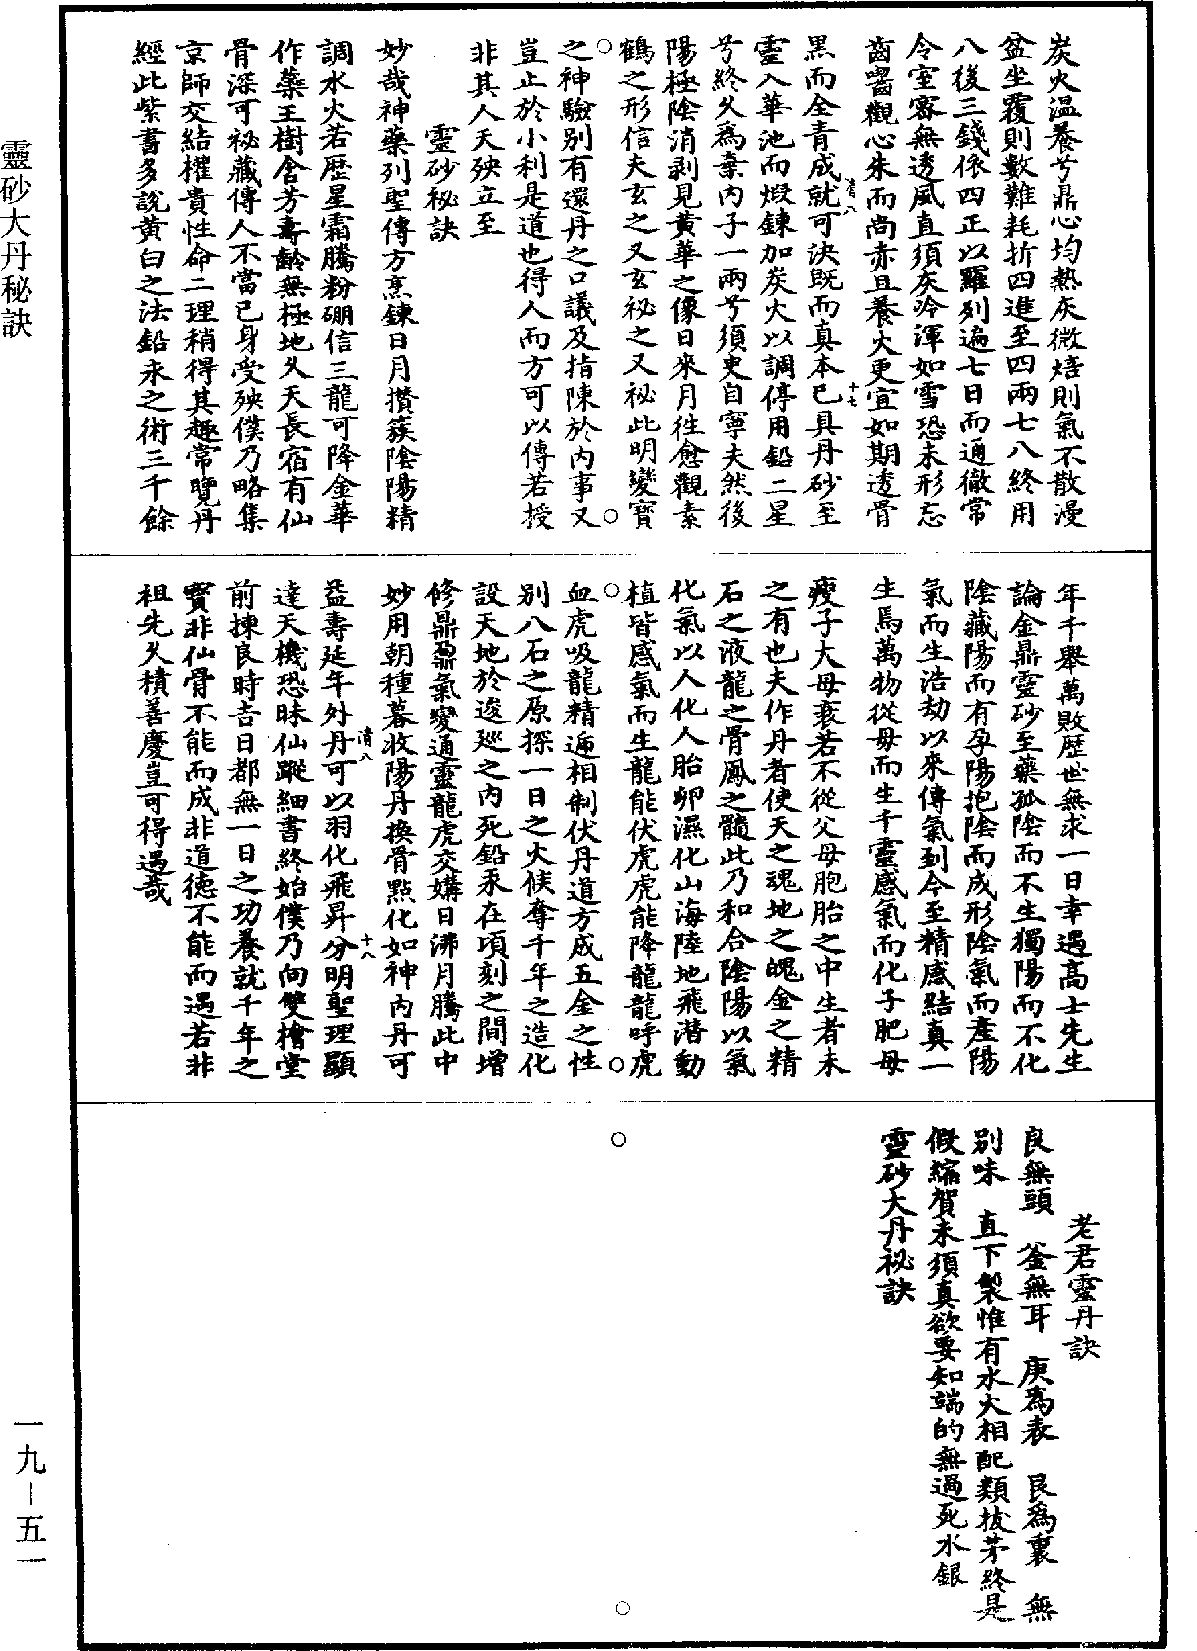 炭火溫養兮鼎心均熱灰微焙則氣不散漫
盆坐覆則數難耗折四進至四兩七八終用
八後三錢依四正以羅列遍七日而通徹常
令室密無透風直須灰冷渾如雪恐未形忘
齒嚙觀心朱而尚赤且養火更宜如期透骨
黑而全青成就可決既而真本已具丹砂至
靈入華池而煅鍊加炭火以調停用鉛二星
兮終久為棄內子一兩兮須臾自寧夫然後
陽極陰消剥見黃華之像日來月往愈觀素
鶴之形信夫玄之又玄祕之又祕此明變寳
之神驗別有還丹之口議及指陳於內事又
豈止於小利是道也得人而方可以傳若授
非其人天殃立至
靈砂祕訣
妙哉神藥列聖傳方烹鍊日月攢蔟陰陽精
調水火若歷星霜騰粉硼信三龍可降金華
作藥王樹含芳壽齡無極地久天長宿有仙
骨深可祕藏傳人不當已身受殃僕乃略集
京師交結權貴性命二理稍得其趣常覽丹
經此紫書多說黃白之法鉛汞之術三千餘
清八
十七
年千舉萬敗歷世無求一日幸遇高士先生
論金鼎靈砂至藥孤陰而不生獨陽而不化
陰藏陽而有孕陽抱陰而成形陰氣而產陽
氣而生浩劫以來傳氣到今至精感結真一
生焉萬物從母而生千靈感氣而化子肥母
瘦子大母衰若不從父母胞胎之中生者未
之有也夫作丹者使天之魂地之魄金之精
石之液龍之骨鳳之髓此乃和合陰陽以氣
化氣以人化人胎卵濕化山海陸地飛潛動
植皆感氣而生龍能伏虎虎能降龍龍呼虎
血虎吸龍精遞相制伏丹道方成五金之性
別八石之原探一日之火候奪千年之造化
設天地於逡廵之內死鉛汞在頃刻之間增
修鼎鼐氣變通靈龍虎交媾日沸月騰此中
妙用朝種暮收陽丹換骨點化如神內丹可
益壽延年外丹可以羽化飛昇分明聖理顯
達天機恐昧仙蹤細書終始僕乃向雙檜堂
前揀良時吉日都無一日之功養就千年之
寳非仙骨不能而成非道德不能而遇若非
祖先久積善慶豈可得遇哉
清八
十八
老君靈丹訣
良無頭　釜無耳　庚為表　艮為裏　無
別味　直下製惟有水火相配類拔茅終是
假縮賀未須真欲要知端的無過死水銀
靈砂大丹祕訣
靈砂大丹秘訣
一九－五一